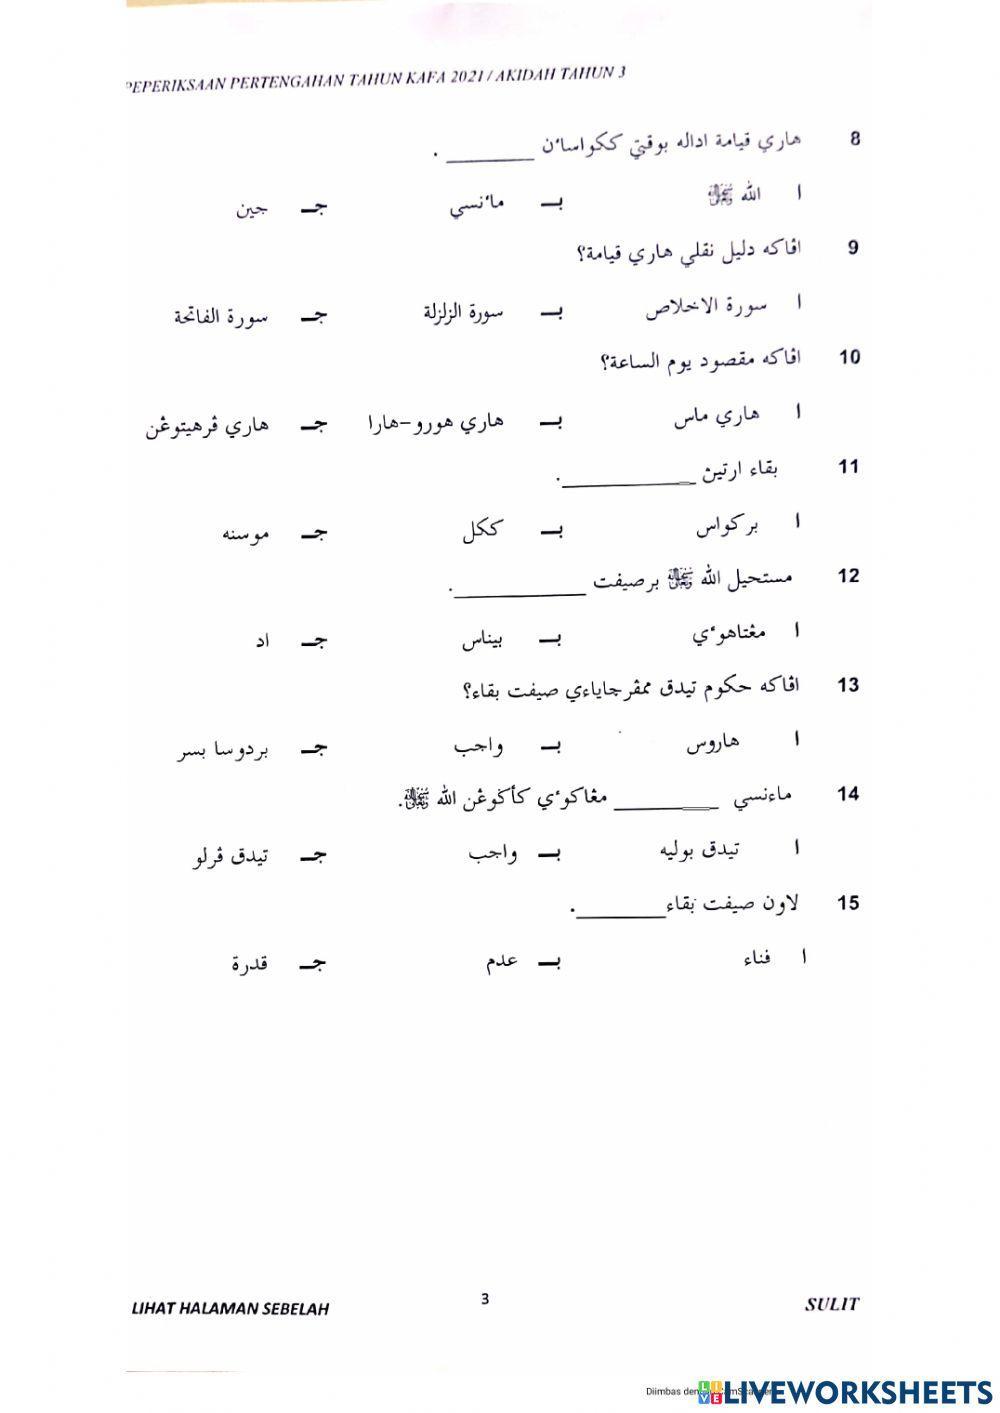 PEPERIKSAAN PERTENGAHAN TAHUN KAFA 2021 / AKIDAH TAHUN 3
8 هاري قيامة اداله بوقتي ككواساءن ________ .
ا الله ﷻ بـ ماءنسي جـ جين
9 اڤاكه دليل نقلي هاري قيامة؟
ا سورة الاخلاص بـ سورة الزلزلة جـ سورة الفاتحة
10 اڤاكه مقصود يوم الساعة؟
ا هاري ماس بـ هاري هورو-هارا جـ هاري ڤرهيتوڠن
11 بقاء ارتيڽ ____________.
ا بركواس بـ ككل جـ موسنه
12 مستحيل الله ﷻ برصيفت ____________.
ا مڠتاهوءي بـ بيناس جـ اد
13 اڤاكه حكوم تيدق ممڤرجاياءي صيفت بقاء؟
ا هاروس بـ واجب جـ بردوسا بسر
14 ماءنسي _________ مڠاكوءي كأݢوڠن الله ﷻ.
ا تيدق بوليه بـ واجب جـ تيدق ڤرلو
15 لاون صيفت بقاء________.
ا فناء بـ عدم جـ قدرة
LIHAT HALAMAN SEBELAH 3 SULIT
LIVEWORKSHEETS